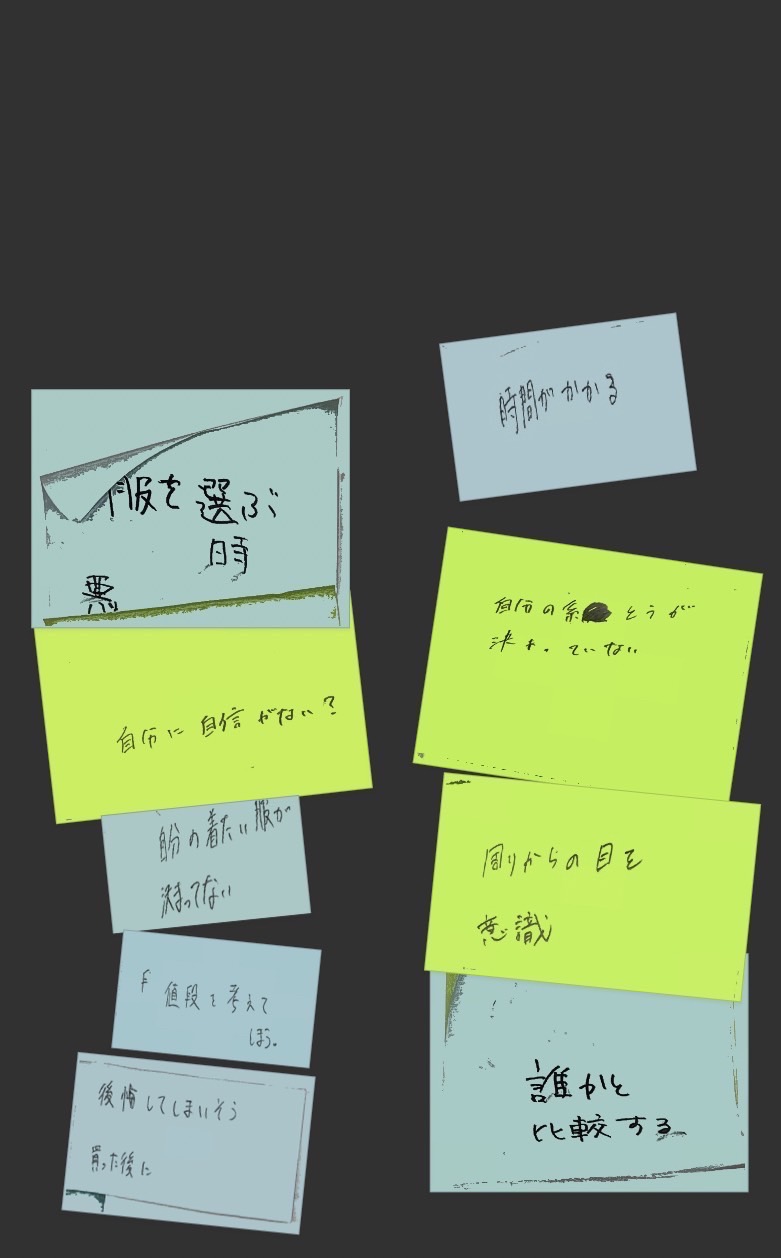 服を選ぶ
時
悪
自分に自信がない?
自分の着たい服が
決まってない
値段を考えて
しまう。
後悔してしまいそう
買った後に
時間がかかる
自分の系とうが
決まっていない
周りからの目を
意識
誰かと
比較する